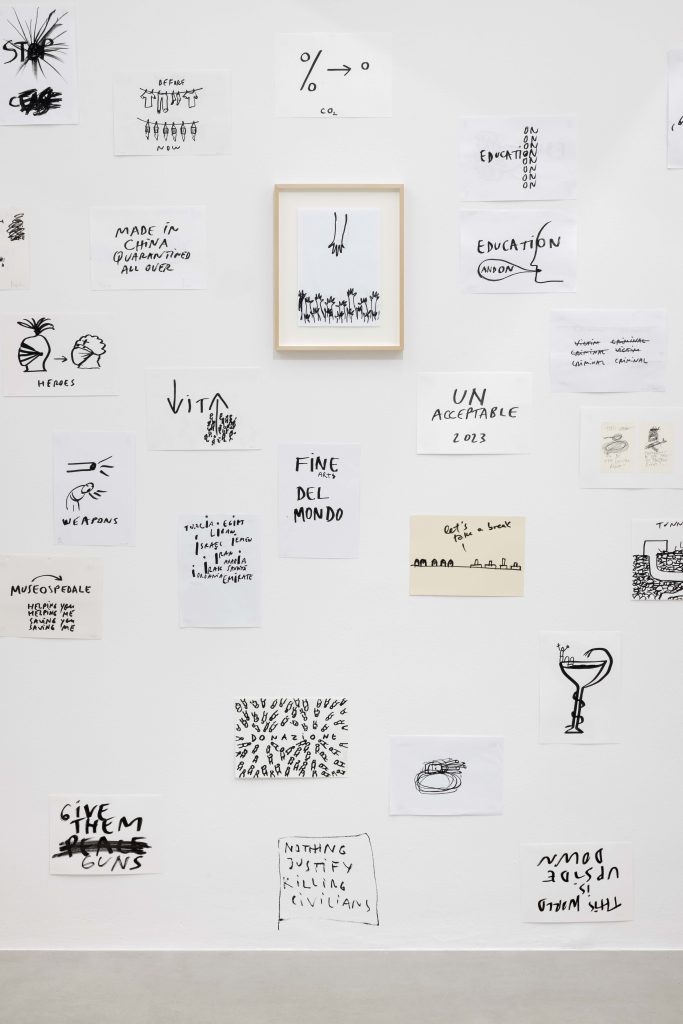 STOP
CEASE
BEFORE
NOW
% → °
CO₂
EDUCATION
ON
ON
ON
ON
ON
ON
MADE IN
CHINA
QUARANTINED
ALL OVER
EDUCATION
AND ON
HEROES
VICTIM CRIMINAL
CRIMINAL VICTIM
CRIMINAL CRIMINAL
VITA
UN
ACCEPTABLE
2023
WEAPONS
FINE
ARTS
DEL
MONDO
TURCHIA EGIPT
LIBAN
ISRAEL YEMEN
IRAN
ARABIA
IRAK SAUDITE
JORDANIA
EMIRATE
let's
take a break
!
TUNN
MUSEOSPEDALE
HELPING YOU
HELPING ME
SAVING YOU
SAVING ME
DONAZIONE
GIVE
THEM
PEACE
GUNS
NOTHING
JUSTIFY
KILLING
CIVILIANS
THIS WORLD
IS
UPSIDE
DOWN